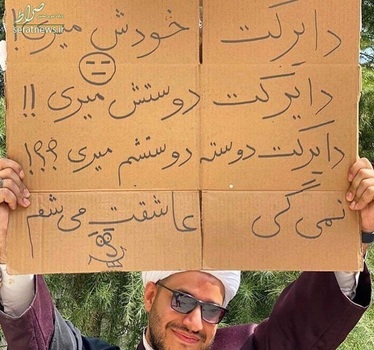 صراط
seratnews.ir
دایرکت خودش میری!
دایرکت دوستش میری !!
دایرکت دوسته دوستشم میری ؟؟؟!
نمی گی عاشقت می شم